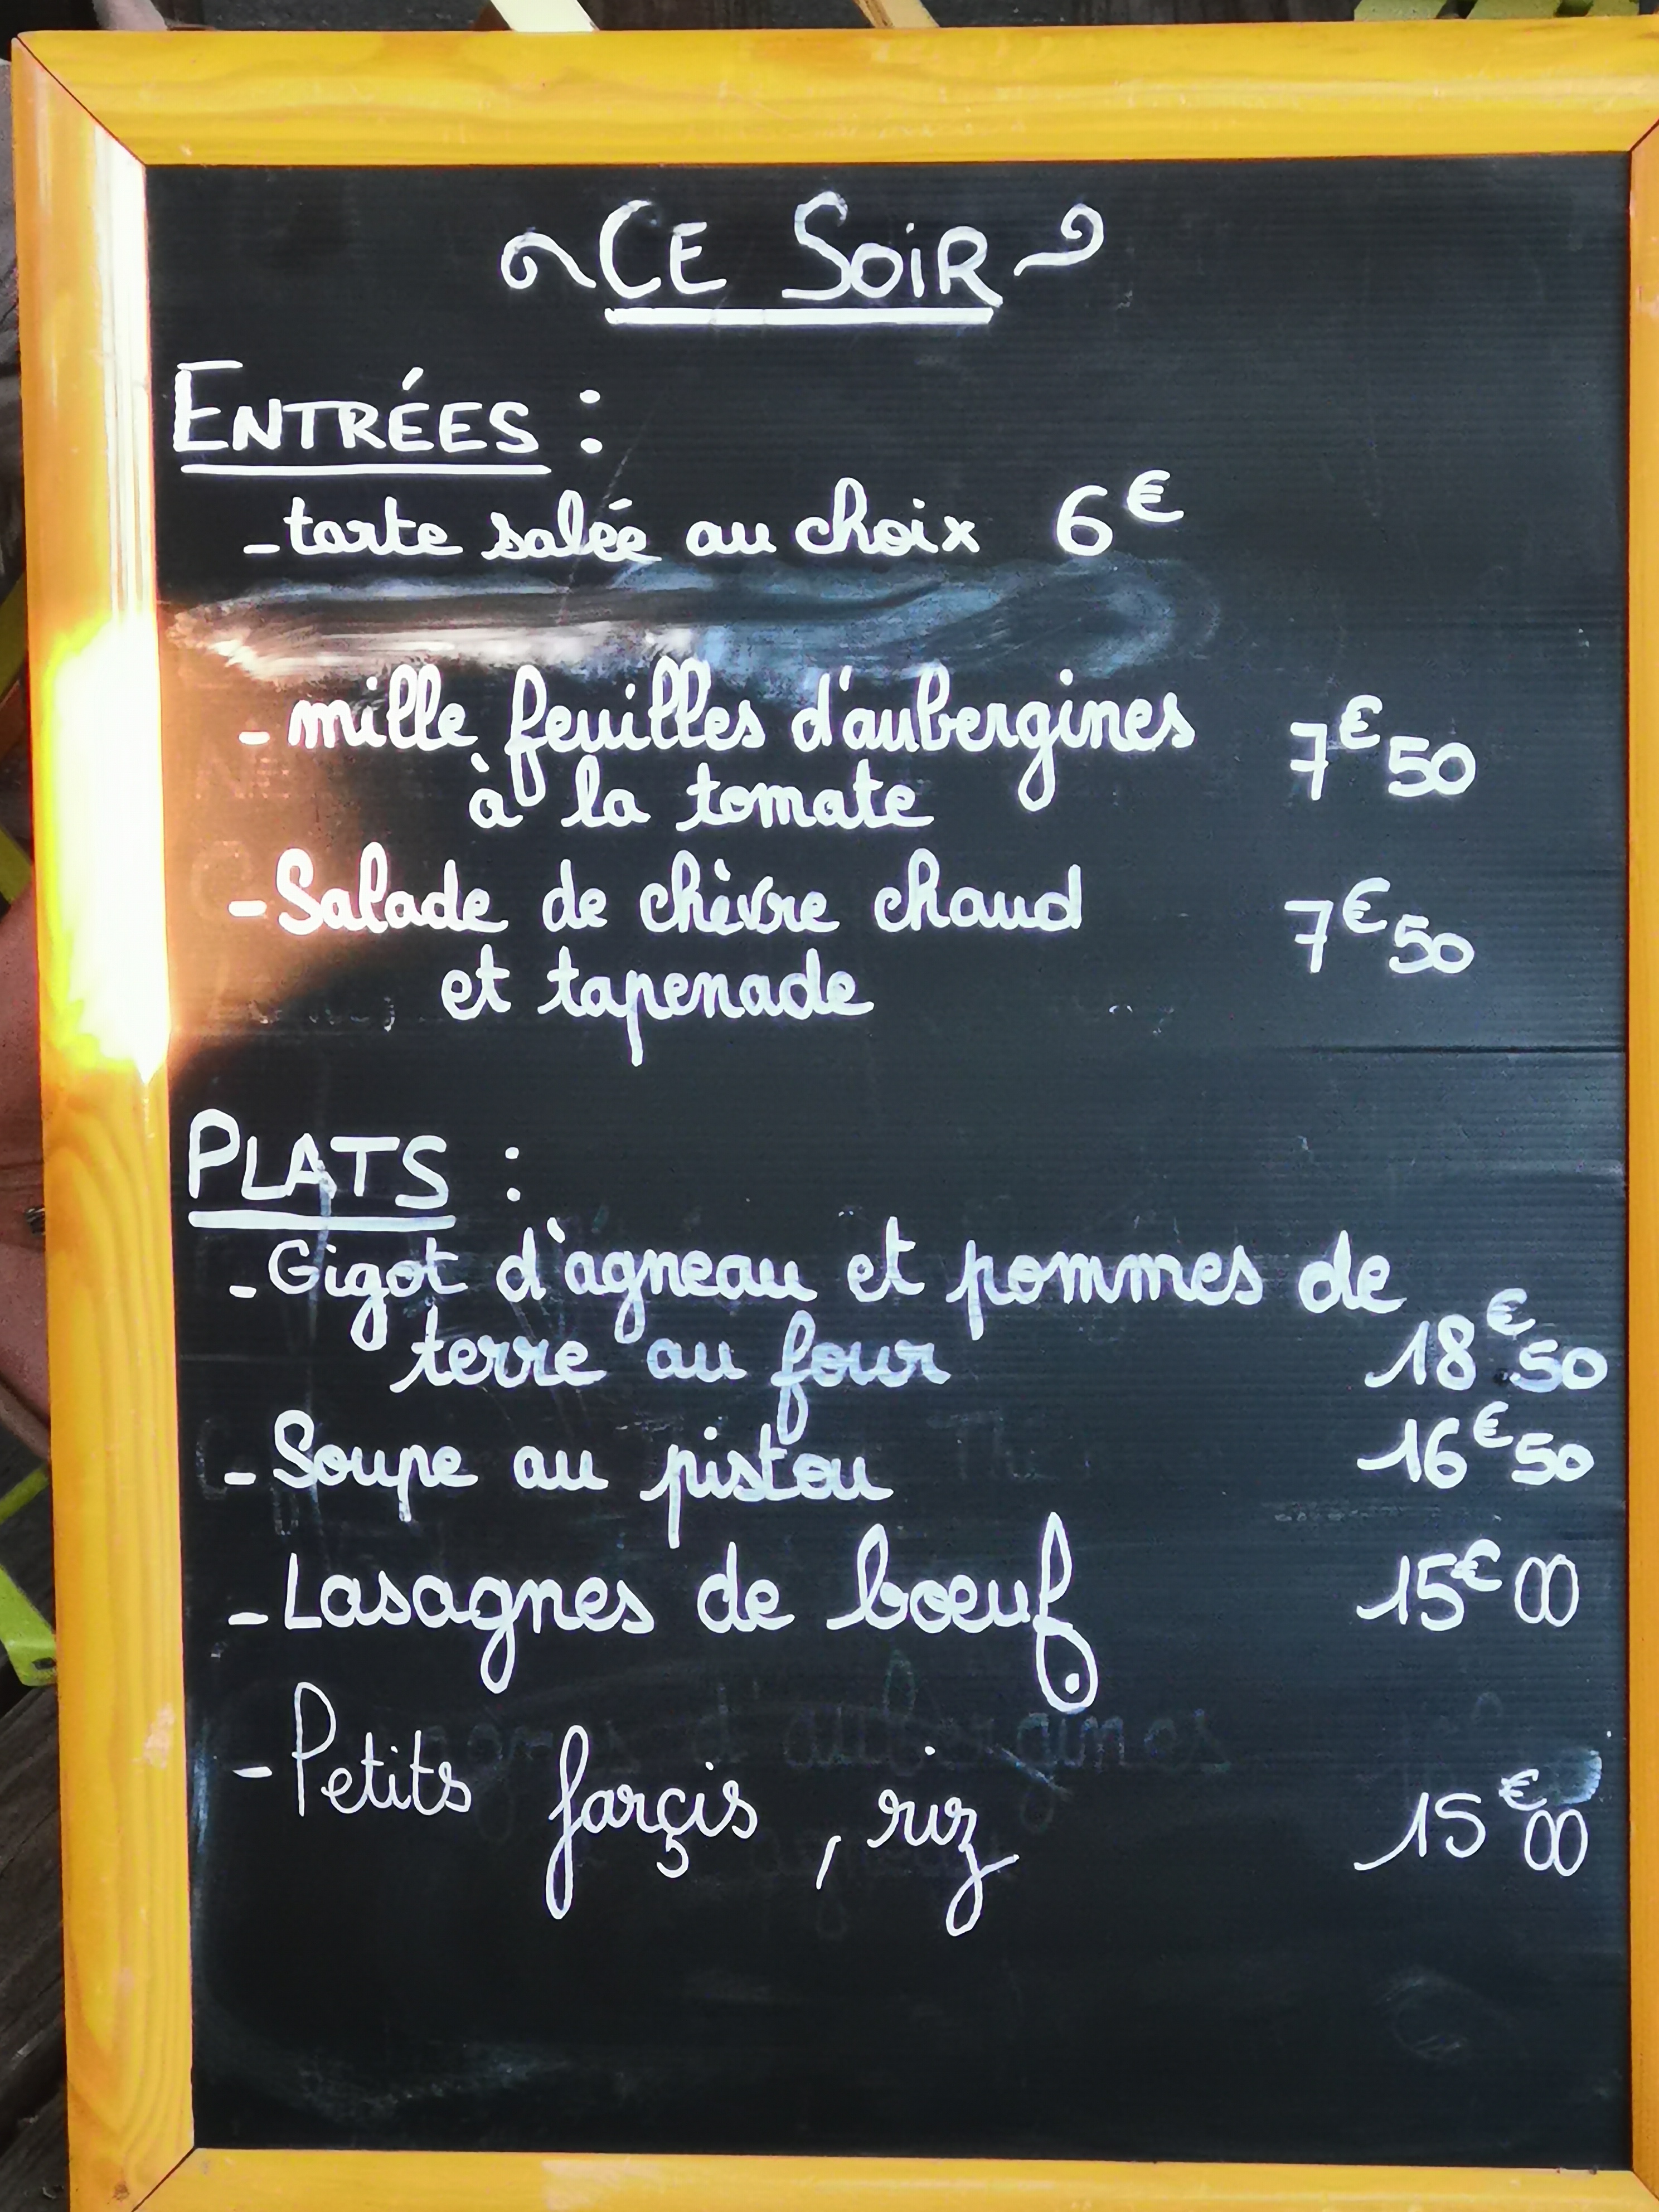 CE SOIR
ENTRÉES :
- tarte salée au choix 6€
- mille feuilles d'aubergines 7€50
à la tomate
- Salade de chèvre chaud 7€50
et tapenade
PLATS :
- Gigot d'agneau et pommes de
terre au four 18€50
- Soupe au pistou 16€50
- Lasagnes de bœuf 15€00
- Petits farçis, riz 15€00